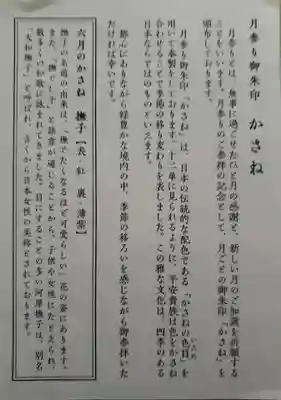 月参り御朱印 かさね
月参りとは、無事に過ごせたひと月の感謝と、新しい月のご加護を祈願する
ことをいいます。月参りのご参拝の記念として、月ごとの御朱印『かさね』を
頒布しております。
月参り御朱印『かさね』は、日本の伝統的な配色である「かさねの色目」を
いろめ
用いて奉製をしております。十二単に見られるように、平安貴族は色をかさね
合わせることで季節の移り変わりを表しました。この雅な文化は、四季のある
日本ならではのものといえます。
都心にありながら緑豊かな境内の中、季節の移ろいを感じながら御参拝いた
だければ幸いです。
六月のかさね 撫子【表・紅 裏・薄紫】
撫子の名前の由来は、「撫でたくなるほど可愛らしい」花の姿にあります。
また、「撫でし子」と語意が通じることから、子供や女性にたとえられ、
数多くの和歌に詠まれてきました。目にすることの多い河原撫子は、別名
「大和撫子」と呼ばれ、古くから日本女性の美称とされております。